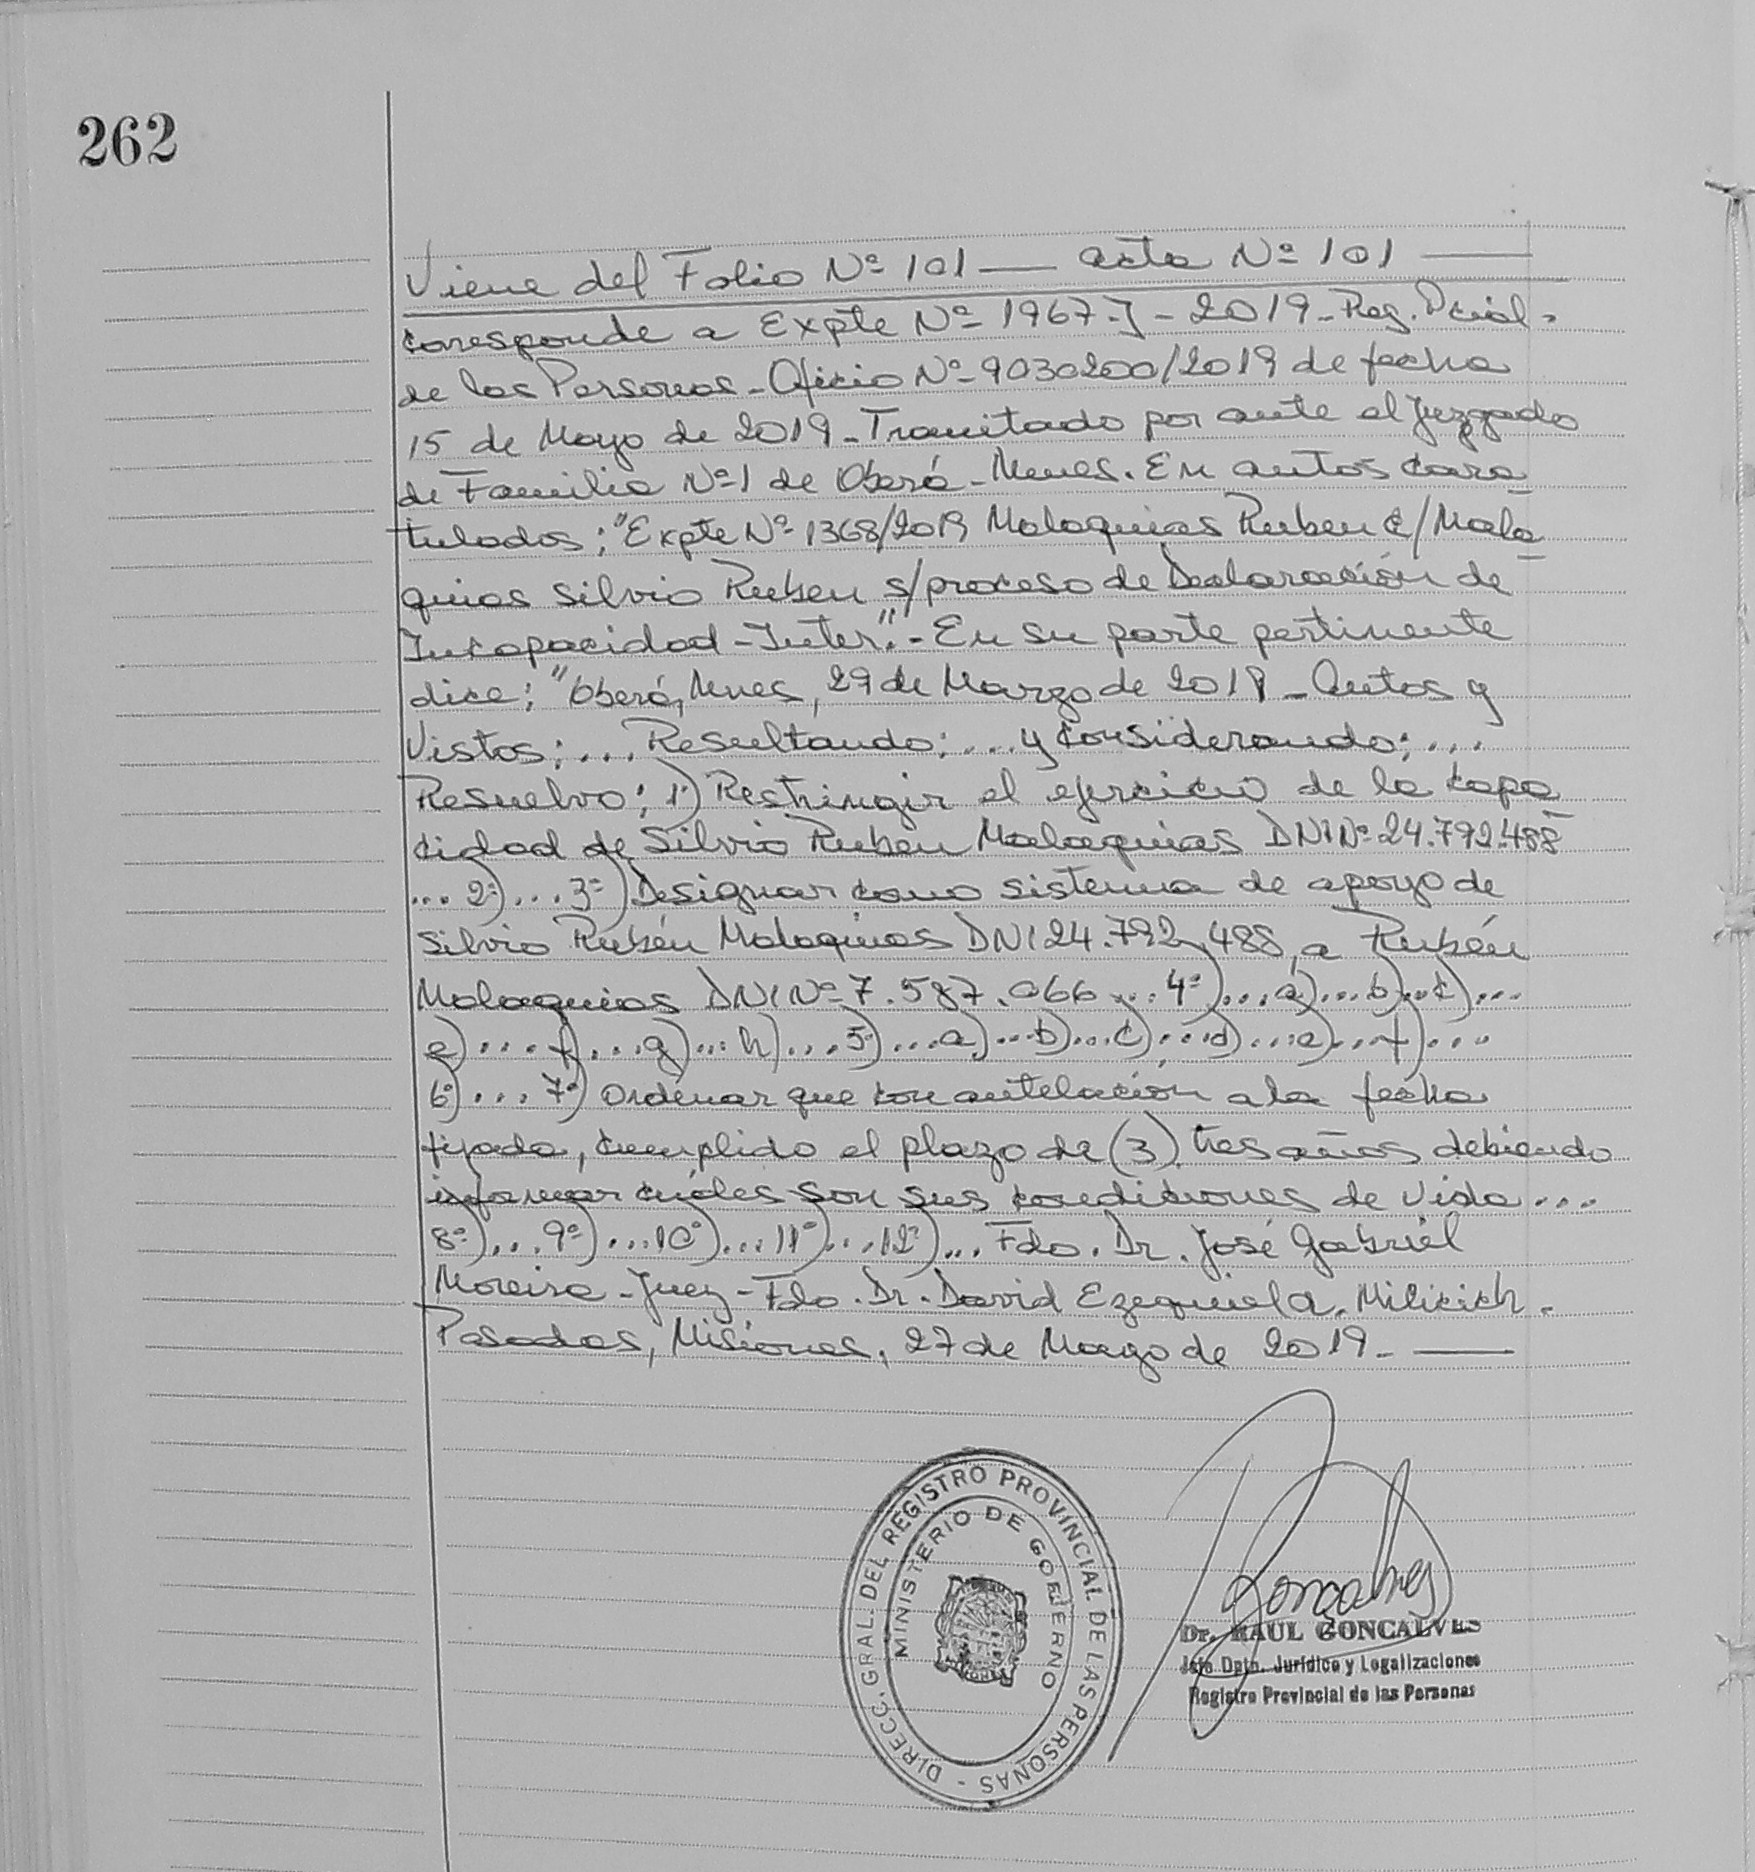 262
Viene del Folio Nº 101 — acta Nº 101 —
corresponde a Expte Nº 1967-J-2019-Reg. Pcial.
de las Personas-Oficio Nº 9030200/2019 de fecha
15 de Mayo de 2019-Tramitado por ante el Juzgado
de Familia Nº1 de Oberá-Mnes. En autos cara
tulados: "Expte Nº 1368/2019 Malaquias Ruben C/Mala
quias Silvio Ruben s/proceso de Declaración de
Incapacidad-Inter."-En su parte pertinente
dice: "Oberá, Mnes, 29 de Marzo de 2019-Autos y
Vistos:... Resultando:... y Considerando:...
Resuelvo: 1º) Restringir el ejercicio de la capa
cidad de Silvio Ruben Malaquias DNI Nº 24.792.488
...2º)...3º) Designar como sistema de apoyo de
Silvio Rubén Malaquias DNI 24.792.488, a Rubén
Malaquias DNI Nº 7.587.066...4º)...a)...b)...c)...
e)...f)...g)...h)...5º)...a)...b)...c)...d)...e)...f)...
6º)...7º) Ordenar que con antelación a la fecha
fijada, cumplido el plazo de (3) tres años debiendo
informar cuáles son sus condiciones de vida...
8º)...9º)...10º)...11º)...12º)... Fdo. Dr. José Gabriel
Moreira-Juez-Fdo. Dr. David Ezequiel A. Milicich.
Posadas, Misiones, 27 de Mayo de 2019. —
DIRECC. GRAL. DEL REGISTRO PROVINCIAL DE LAS PERSONAS -
MINISTERIO DE GOBIERNO
Goncalves
Dr. RAUL GONCALVES
Jefe Dpto. Jurídico y Legalizaciones
Registro Provincial de las Personas